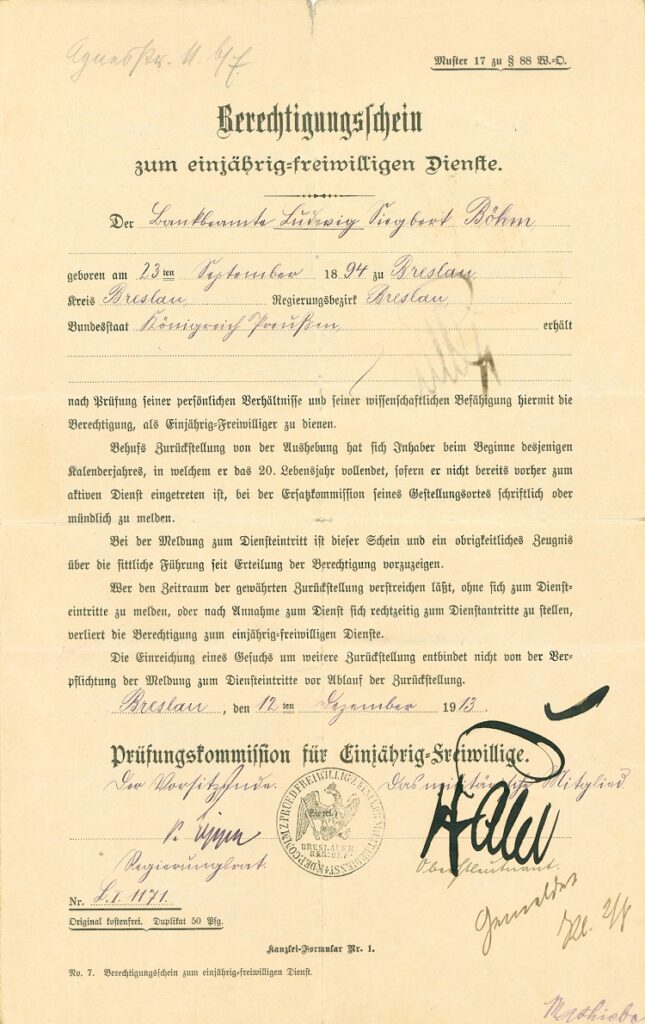 Agnesstr. 11 b/F.
Muster 17 zu § 88 W.-O.
Berechtigungsschein
zum einjährig-freiwilligen Dienste.
Der Bankbeamte Ludwig Siegbert Böhm
geboren am 23ten September 1894 zu Breslau,
Kreis Breslau, Regierungsbezirk Breslau,
Bundesstaat Königreich Preußen, erhält
nach Prüfung seiner persönlichen Verhältnisse und seiner wissenschaftlichen Befähigung hiermit die
Berechtigung, als Einjährig-Freiwilliger zu dienen.
Behufs Zurückstellung von der Aushebung hat sich Inhaber beim Beginne desjenigen
Kalenderjahres, in welchem er das 20. Lebensjahr vollendet, sofern er nicht bereits vorher zum
aktiven Dienst eingetreten ist, bei der Ersatzkommission seines Gestellungsortes schriftlich oder
mündlich zu melden.
Bei der Meldung zum Diensteintritt ist dieser Schein und ein obrigkeitliches Zeugnis
über die sittliche Führung seit Erteilung der Berechtigung vorzuzeigen.
Wer den Zeitraum der gewährten Zurückstellung verstreichen läßt, ohne sich zum Dienst-
eintritte zu melden, oder nach Annahme zum Dienst sich rechtzeitig zum Dienstantritte zu stellen,
verliert die Berechtigung zum einjährig-freiwilligen Dienste.
Die Einreichung eines Gesuchs um weitere Zurückstellung entbindet nicht von der Ver-
pflichtung der Meldung zum Diensteintritte vor Ablauf der Zurückstellung.
Breslau, den 12ten Dezember 1913.
Prüfungskommission für Einjährig-Freiwillige.
Der Vorsitzende. Das militärische Mitglied.
Regierungsrat. Oberstleutnant.
BRESLAUER
REG:BEZ:
Nr. L.I. 1171.
Original kostenfrei. Duplikat 50 Pfg.
Gemeldet
Kanzlei-Formular Nr. 1.
No. 7. Berechtigungsschein zum einjährig-freiwilligen Dienst.